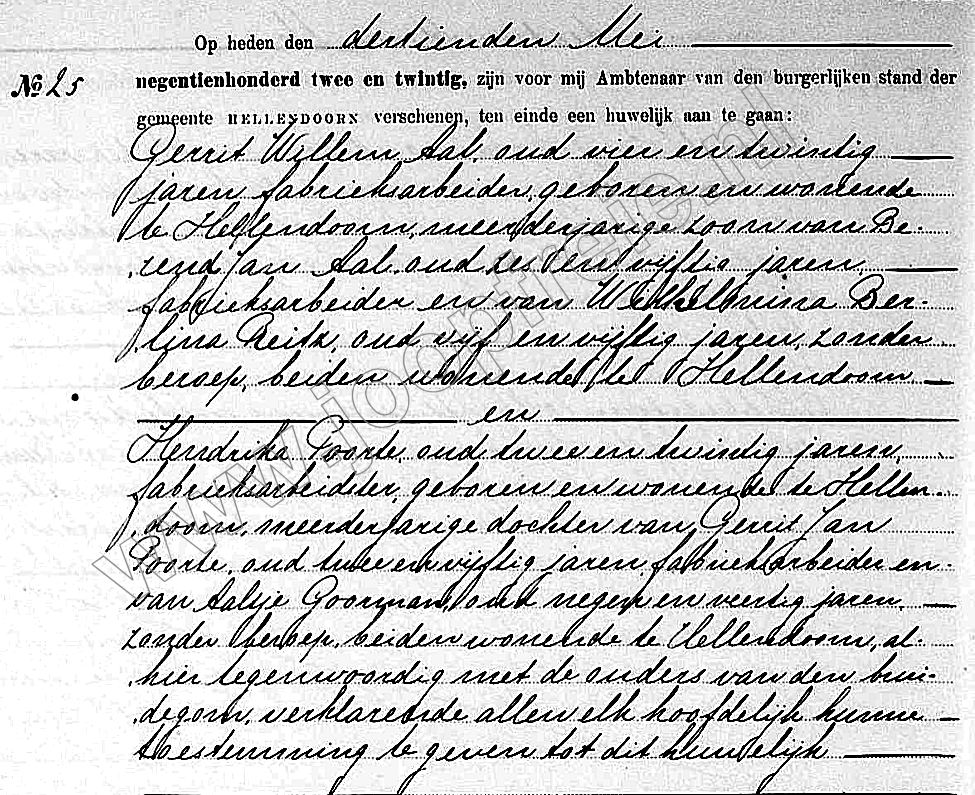 Op heden den dertienden Mei
No 25
negentienhonderd twee en twintig, zijn voor mij Ambtenaar van den burgerlijken stand der
gemeente HELLENDOORN verschenen, ten einde een huwelijk aan te gaan:
Gerrit Willem Aal, oud vier en twintig
jaren, fabrieksarbeider, geboren en wonende
te Hellendoorn, meerderjarige zoon van Be-
rend Jan Aal, oud zes en vijftig jaren,
fabrieksarbeider en van Wilhelmina Ber-
lina Reitz, oud vijf en vijftig jaren, zonder
beroep, beiden wonende te Hellendoorn
en
Hendrika Poorte, oud twee en twintig jaren,
fabrieksarbeidster, geboren en wonende te Hellen-
doorn, meerderjarige dochter van Gerrit Jan
Poorte, oud twee en vijftig jaren, fabrieksarbeider en
van Aaltje Goorman, oud negen en veertig jaren,
zonder beroep, beiden wonende te Hellendoorn, al-
hier tegenwoordig met de ouders van den brui-
degom, verklarende allen elk hoofdelijk hunne
toestemming te geven tot dit huwelijk